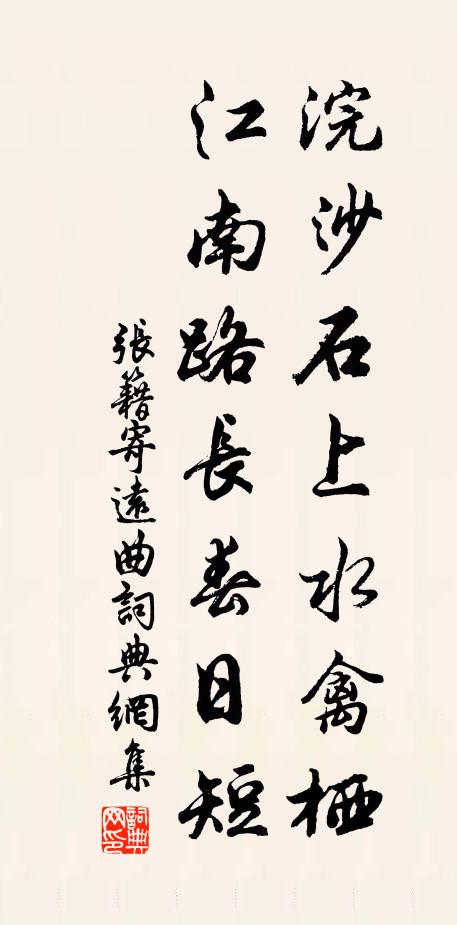 浣沙石上水禽栖
江南路長春日短
張籍寄遠曲詞典網集
詞典
网印